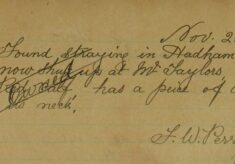 Nov. 2
Found straying in Hadham
now shut up at Mr Taylors
calf has a piece of
his neck.
F. W. Perr